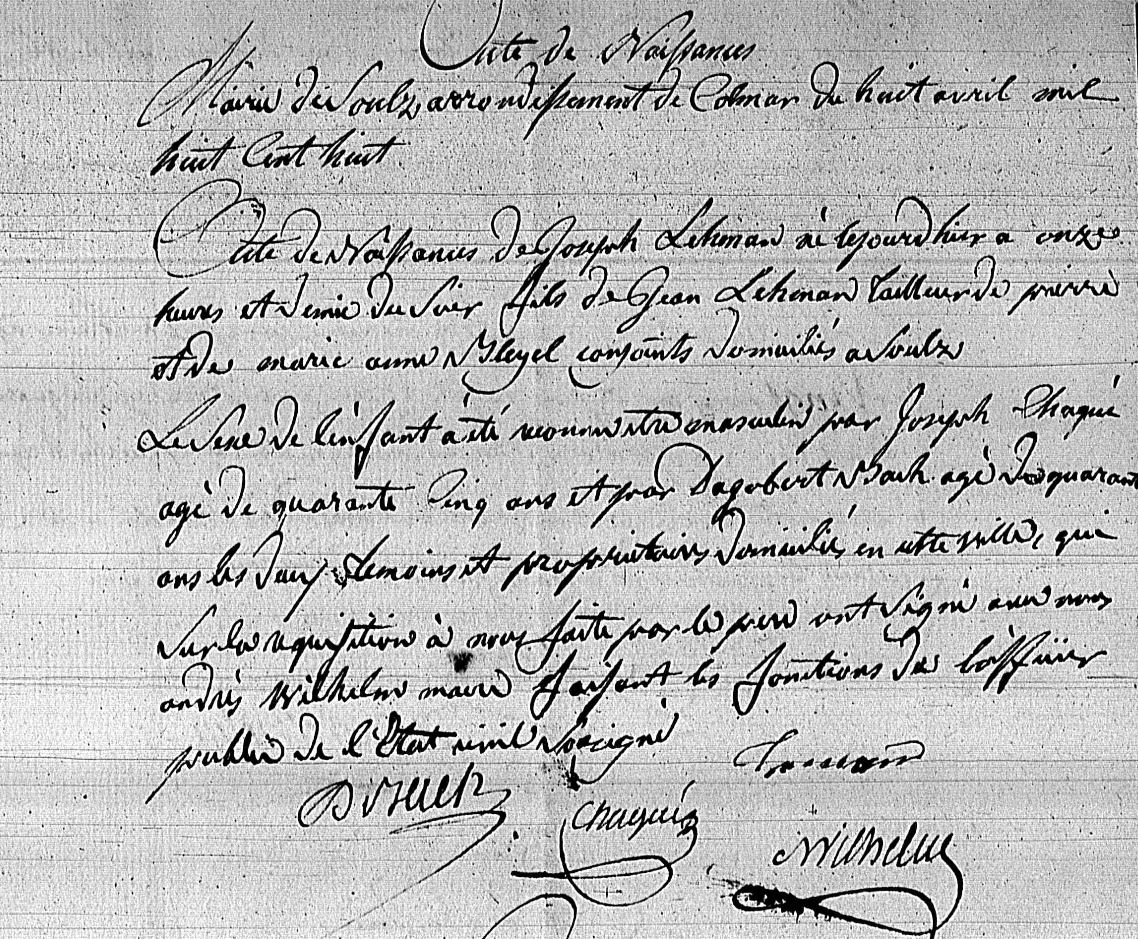 Acte de Naissances
Mairie de Soulz arrondissement de Colmar du huit avril mil
huit Cent huit
Acte de Naissances de Joseph Lehman né le jourdhier a onze
heures et demie du Soir fils de Jean Lehman Tailleur de pierre
et de marie anne Bleyel conjoints domiciliés a Soulz
Le Sexe de lenfant a été reconnu etre masculin par Joseph Chaqué
agé de quarante Cinq ans et par Dagobert Bach agé de quarant
ans les deux temoins et proprietaires domiciliés en cette ville, qui
Sur la requisition à nous faite par le pere ont Signé avec nous
andrés Wilhelm maire faisant les fonctions de l'officier
public de l'Etat civil Sousigné
D Bach
Chaqué
Wilhelm